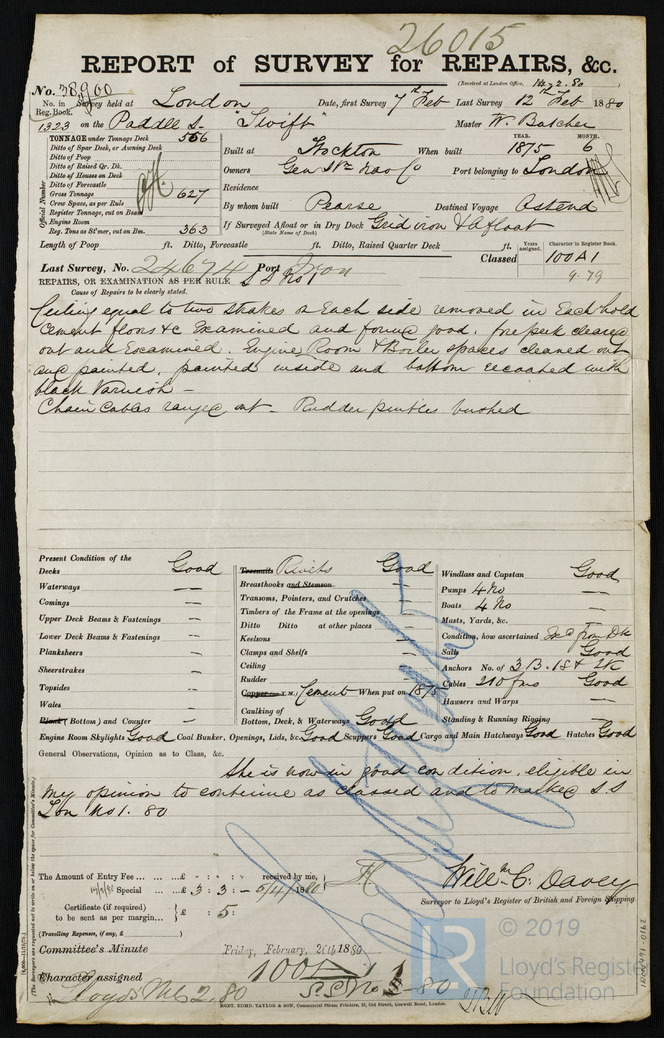 26015
REPORT of SURVEY for REPAIRS, &c.
(Received at London Office, 14.2.80)
No. 38900
No. in Reg. Book. Survey held at London Date, first Survey 7th Feb Last Survey 12th Feb 1880
1323 on the Paddle S. "Swift" Master W. Batcher
TONNAGE under Tonnage Deck 556
Ditto of Spar Deck, or Awning Deck
Ditto of Poop
Ditto of Raised Qr. Dk.
Ditto of Houses on Deck
Ditto of Forecastle
Gross Tonnage 627
Crew Space, as per Rule
Register Tonnage, cut on Beam
Engine Room
Reg. Tons as St'mer, cut on Bm. 363
Official Number
Built at Stockton When built YEAR. 1875 MONTH. 6
Owners Genl Stm Nav Co Port belonging to London
Residence
By whom built Pearse Destined Voyage Ostend
If Surveyed Afloat or in Dry Dock Gridiron & Afloat
(State Name of Dock)
Length of Poop ft. Ditto, Forecastle ft. Ditto, Raised Quarter Deck ft.
Years assigned. Character in Register Book.
Classed 100A1
9.79
Last Survey, No. 24674 Port Iron
REPAIRS, OR EXAMINATION AS PER RULE S S No 1
Cause of Repairs to be clearly stated.
Ceiling equal to two strakes on Each side removed in Each hold
Cement floors &c Examined and found good. fore peak cleared
out and Examined. Engine Room & Boiler spaces cleaned out
and painted, painted inside and bottom recoated with
black Varnish —
Chain Cables ranged out — Rudder pintles bushed
Present Condition of the
Decks Good
Waterways —
Comings —
Upper Deck Beams & Fastenings —
Lower Deck Beams & Fastenings —
Planksheers —
Sheerstrakes —
Topsides —
Wales —
Plank (Bottom) and Counter —
Treenails Rivets Good
Breasthooks and Stemson —
Transoms, Pointers, and Crutches —
Timbers of the Frame at the openings —
Ditto Ditto at other places —
Keelsons —
Clamps and Shelfs —
Ceiling —
Rudder —
Copper (or Y.M.) Cement When put on 1875
Caulking of
Bottom, Deck, & Waterways Good
Windlass and Capstan Good
Pumps 4 No —
Boats 4 No —
Masts, Yards, &c. —
Condition, how ascertained from Dk
Sails Good
Anchors No. of 3 B. 1 S & 2 K
Cables 210 fms Good
Hawsers and Warps —
Standing & Running Rigging —
Engine Room Skylights Good Coal Bunker, Openings, Lids, &c. Good Scuppers Good Cargo and Main Hatchways Good Hatches Good
General Observations, Opinion as to Class, &c.
She is now in good condition, eligible in
my opinion to continue as classed and to marked S.S
Lon No 1. 80
The Amount of Entry Fee ... ... ... £ : : received by me,
Special ... ... £ 3 : 3 : - 5/4/1880
Certificate (if required) to be sent as per margin... £ : 5 :
(Travelling Expenses, if any, £ )
Willm C. Davey
Surveyor to Lloyd's Register of British and Foreign Shipping.
Committee's Minute Friday, February, 20th 1880
Character assigned 100A1
S.S. No 1 - 80
Lloyd's MC 2.80
KONY, EDMD. TAYLOR & SON, Commercial Steam Printers, 21, Old Street, Goswell Road, London.
(The Surveyors are requested not to write on or below the space for Committee's Minute.)
LR
© 2019
Lloyd's Register
Foundation